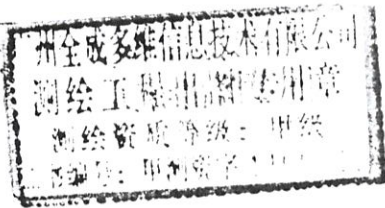 州全成多维信息技术有限公司
测绘工程出专用章
测绘资质等级：甲级
编号：甲测资字